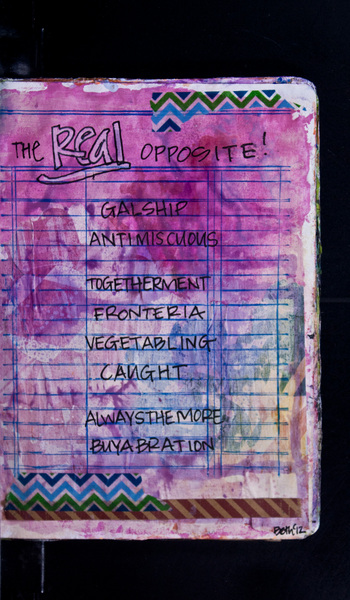 THE Real OPPOSITE!
GALSHIP
ANTIMISCUOUS
TOGETHERMENT
FRONTERIA
VEGETABLING
CAUGHT
ALWAYSTHEMORE
BUYABRATION
Beth '12